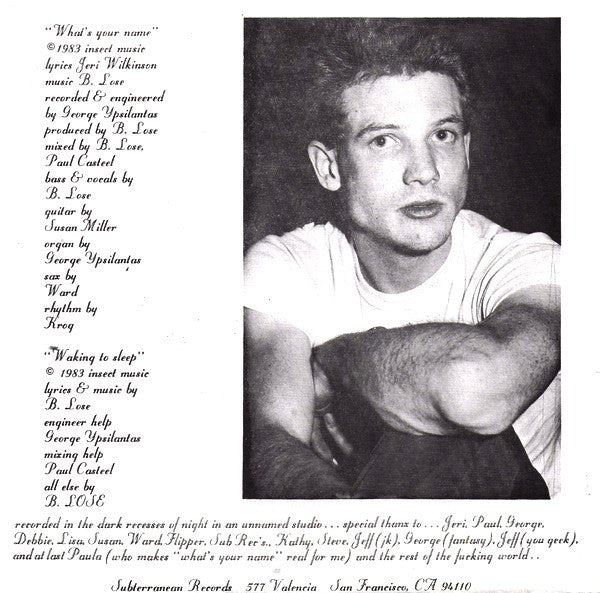 "What's your name"
© 1983 insect music
lyrics Jeri Wilkinson
music B. Lose
recorded & engineered
by George Ypsilantas
produced by B. Lose
mixed by B. Lose,
Paul Casteel
bass & vocals by
B. Lose
guitar by
Susan Miller
organ by
George Ypsilantas
sax by
Ward
rhythm by
Krog
"Waking to sleep"
© 1983 insect music
lyrics & music by
B. Lose
engineer help
George Ypsilantas
mixing help
Paul Casteel
all else by
B. LOSE
recorded in the dark recesses of night in an unnamed studio... special thanx to... Jeri, Paul, George,
Debbie, Lisa, Susan, Ward, Flipper, Sub Rec's., Kathy, Steve, Jeff (jk), George (fantasy), Jeff (you geek),
and at last Paula (who makes "what's your name" real for me) and the rest of the fucking world..
Subterranean Records 577 Valencia San Francisco, CA 94110